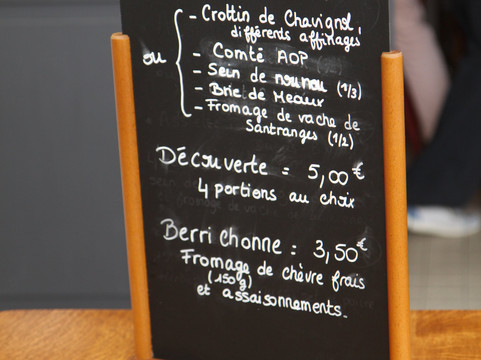 - Crottin de Chavignol,
différents affinages
ou
- Comté AOP
- Sein de nounou (1/3)
- Brie de Meaux
- Fromage de vache de
Santranges (1/2)
Découverte = 5,00€
4 portions au choix
Berrichonne : 3,50€
Fromage de chèvre frais
(150g)
et assaisonnements.